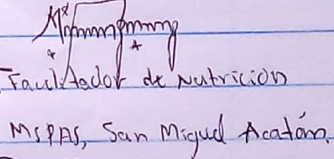 Facilitador de Nutrición
MSPAS, San Miguel Acatán